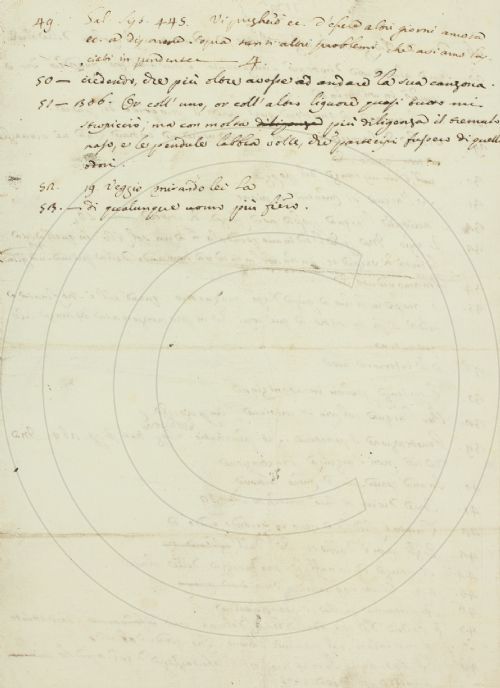 49. Sal. Sig. 445. Vi pregherò ec. d'esser altri giorni amore
ec. a disporre sopra tanti altri problemi, che aviamo la-
sciati in pendente — 4.
50 — credendo, che più oltre avesse ad andare la sua canzona.
51 — B86. Or coll'uno, or coll'altro liquore quasi tutto mi
stropicciò, ma con molta diligenza più diligenza il tremulo
naso, e le pendule labbia volle, che partecipi fussero di quelli
odori.
52. 19. Veggio mirando lei la
53. — di qualunque uomo più fiero.